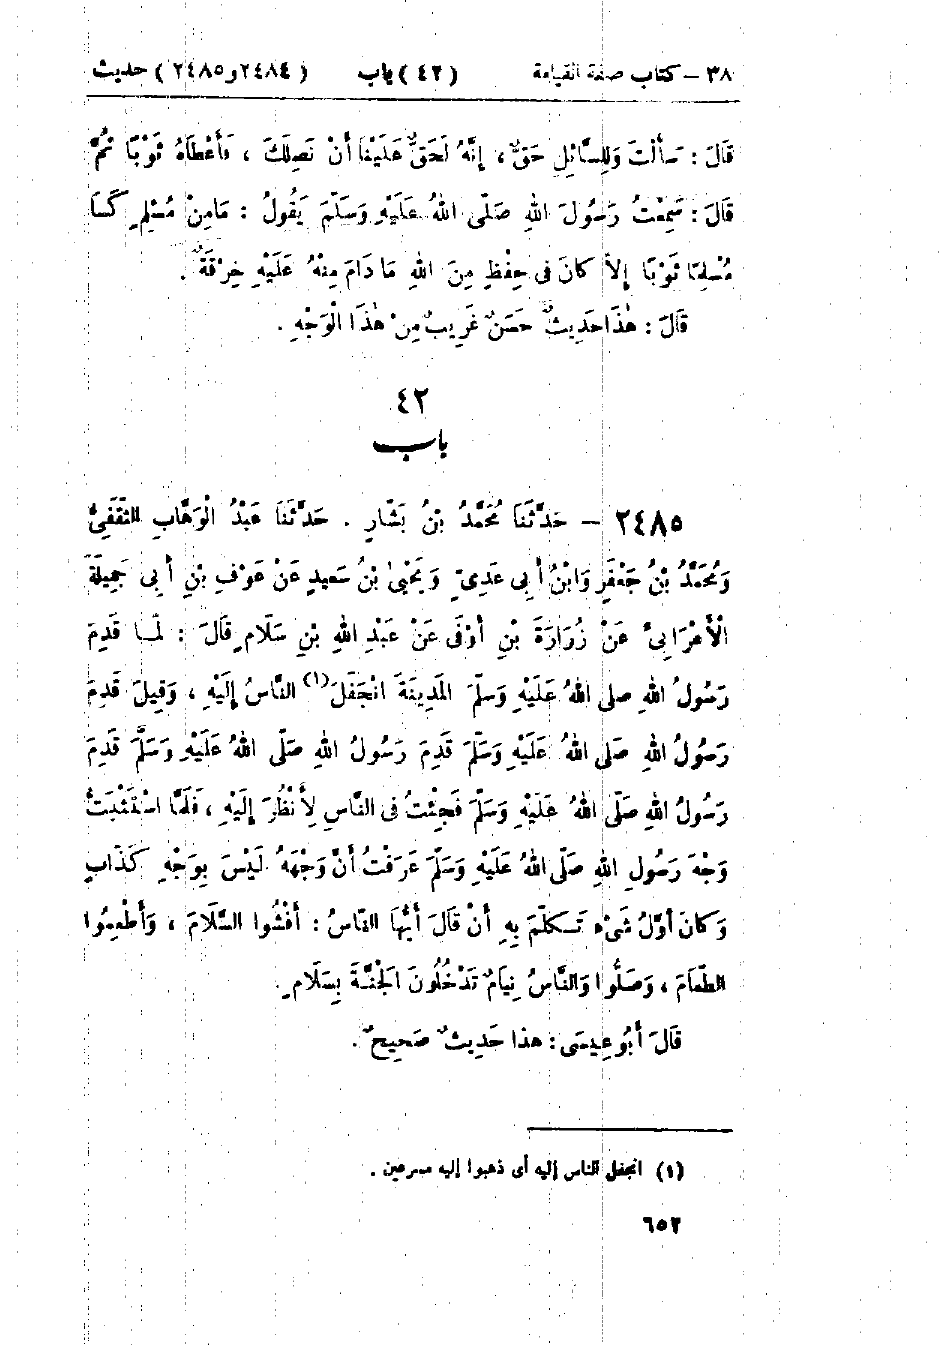 ٣٨ – كتاب صفة القيامة (٤٢) باب (٢٤٨٤ و٢٤٨٥) حديث
قَالَ : سَأَلْتَ وَلِلسَّائِلِ حَقٌّ ، إِنَّهُ لَحَقٌّ عَلَيْنَا أَنْ نَصِلَكَ ، فَأَعْطَاهُ ثَوْبًا ثُمَّ
قَالَ : سَمِعْتُ رَسُولَ اللهِ صَلَّى اللهُ عَلَيْهِ وَسَلَّمَ يَقُولُ : مَامِنْ مُسْلِمٍ كَسَا
مُسْلِمًا ثَوْبًا إِلاَّ كَانَ فِى حِفْظٍ مِنَ اللهِ مَا دَامَ مِنْهُ عَلَيْهِ خِرْقَةٌ .
قَالَ : هٰذَا حَدِيثٌ حَسَنٌ غَرِيبٌ مِنْ هٰذَا الْوَجْهِ .
٤٢
باب
٢٤٨٥ – حَدَّثَنَا مُحَمَّدُ بْنُ بَشَّارٍ . حَدَّثَنَا عَبْدُ الْوَهَّابِ الثَّقَفِىُّ
وَمُحَمَّدُ بْنُ جَعْفَرٍ وَابْنُ أَبِى عَدِىٍّ وَيَحْيَىٰ بْنُ سَعِيدٍ عَنْ عَوْفِ بْنِ أَبِى جَمِيلَةَ
الْأَعْرَابِىِّ عَنْ زُرَارَةَ بْنِ أَوْفَى عَنْ عَبْدِ اللهِ بْنِ سَلَامٍ قَالَ : لَمَّا قَدِمَ
رَسُولُ اللهِ صلى اللهُ عَلَيْهِ وَسَلَّمَ الْمَدِينَةَ انْجَفَلَ(١) النَّاسُ إِلَيْهِ ، وَقِيلَ قَدِمَ
رَسُولُ اللهِ صَلَّى اللهُ عَلَيْهِ وَسَلَّمَ قَدِمَ رَسُولُ اللهِ صَلَّى اللهُ عَلَيْهِ وَسَلَّمَ قَدِمَ
رَسُولُ اللهِ صَلَّى اللهُ عَلَيْهِ وَسَلَّمَ فَجِئْتُ فِى النَّاسِ لِأَنْظُرَ إِلَيْهِ ، فَلَمَّا اسْتَثْبَتُّ
وَجْهَ رَسُولِ اللهِ صَلَّى اللهُ عَلَيْهِ وَسَلَّمَ عَرَفْتُ أَنَّ وَجْهَهُ لَيْسَ بِوَجْهِ كَذَّابٍ
وَكَانَ أَوَّلُ شَىْءٍ تَكَلَّمَ بِهِ أَنْ قَالَ أَيُّهَا النَّاسُ : أَفْشُوا السَّلَامَ ، وَأَطْعِمُوا
الطَّعَامَ ، وَصَلُّوا وَالنَّاسُ نِيَامٌ تَدْخُلُونَ الْجَنَّةَ بِسَلَامٍ .
قَالَ أَبُو عِيسَى : هذا حَدِيثٌ صَحِيحٌ .
(١) انجفل الناس إليه أى ذهبوا إليه مسرعين .
٦٥٢